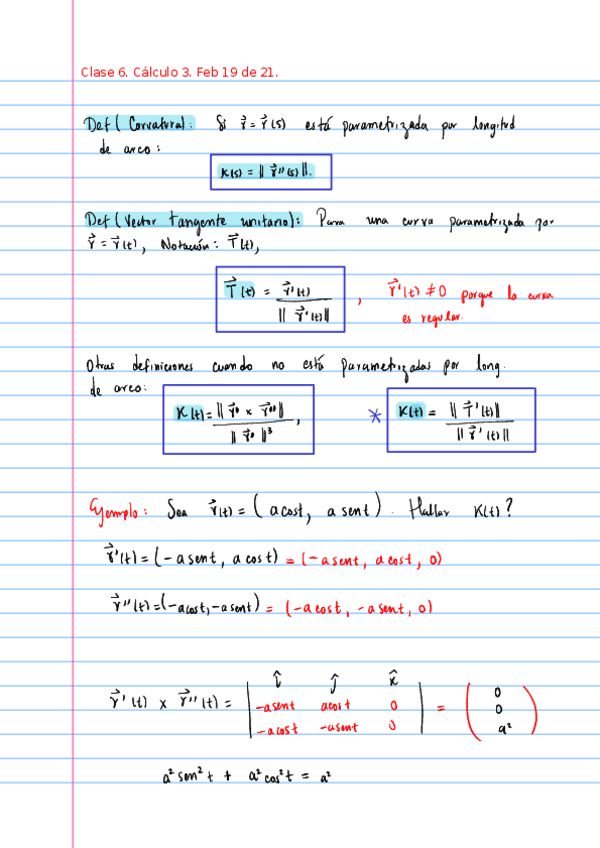 Clase 6. Cálculo 3. Feb 19 de 21.
Def (Curvatura): Si r⃗ = r⃗(s) está parametrizada por longitud
de arco:
K(s) = ‖ r⃗''(s) ‖.
Def (Vector tangente unitario): Para una curva parametrizada por
r⃗ = r⃗(t), Notación: T⃗(t),
T⃗(t) = r⃗'(t) / ‖ r⃗'(t) ‖ , r⃗'(t) ≠ 0 porque la curva
es regular.
Otras definiciones cuando no está parametrizadas por long.
de arco:
K(t) = ‖ r⃗' × r⃗'' ‖ / ‖ r⃗' ‖³ , * K(t) = ‖ T⃗'(t) ‖ / ‖ r⃗'(t) ‖
Ejemplo: Sea r⃗(t) = (a cost, a sent). Hallar K(t)?
r⃗'(t) = (-a sent, a cos t) = (-a sent, a cost, 0)
r⃗''(t) = (-a cost, -a sent) = (-a cost, -a sent, 0)
î ĵ k̂
r⃗'(t) × r⃗''(t) = | -a sent a cost 0 | = ( 0
0
-a cost -a sent 0
a² )
a² sen² t + a² cos² t = a²